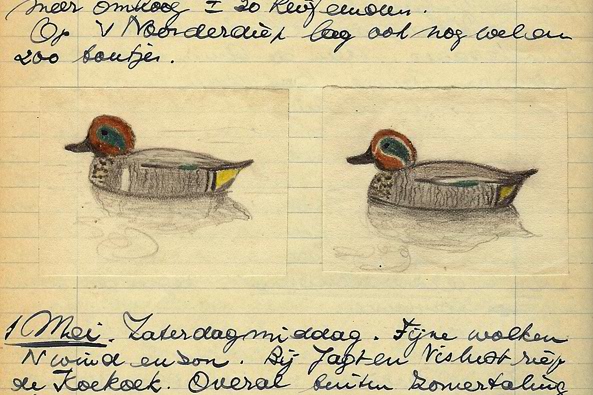 meer omhoog ± 20 Kuifeenden.
Op 't Noorderdiep lag ook nog wel een
200 tontjes.
1 Mei. Zaterdagmiddag. Fijne wolken
N wind en zon. Bij Jagt en Vislust riep
de Koekoek. Overal buiten zomertaling